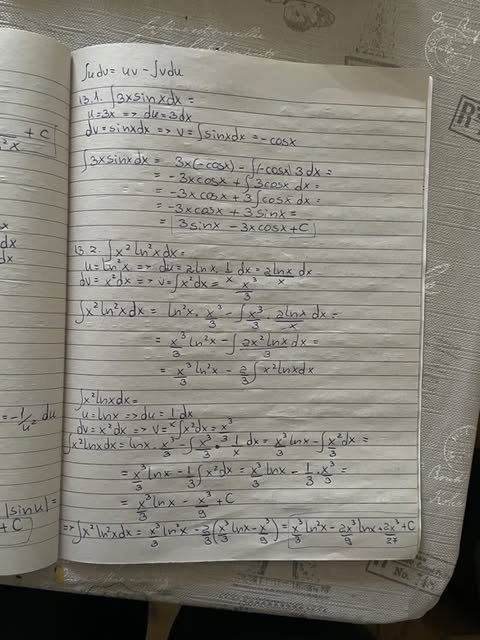 ∫udv = uv - ∫vdu
13.1. ∫3xsinxdx =
u=3x => du=3dx
dv=sinxdx => v=∫sinxdx=-cosx
∫3xsinxdx = 3x(-cosx) - ∫(-cosx)3dx =
= -3xcosx + ∫3cosx dx =
= -3xcosx + 3∫cosx dx =
= -3xcosx + 3sinx =
= 3sinx - 3xcosx + C
13.2. ∫x²ln²xdx =
u=ln²x => du=2lnx·1/x dx = 2lnx/x dx
dv=x²dx => v=∫x²dx = x³/3
∫x²ln²xdx = ln²x·x³/3 - ∫x³/3·2lnx/x dx =
= x³/3 ln²x - ∫2x²lnx/3 dx =
= x³/3 ln²x - 2/3∫x²lnxdx
∫x²lnxdx =
u=lnx => du=1/x dx
dv=x²dx => v=∫x²dx = x³/3
∫x²lnxdx = lnx·x³/3 - ∫x³/3·1/x dx = x³/3 lnx - ∫x²/3 dx =
= x³/3 lnx - 1/3∫x²dx = x³/3 lnx - 1/3·x³/3 =
= x³/3 lnx - x³/9 + C
=> ∫x²ln²xdx = x³/3 ln²x - 2/3(x³/3 lnx - x³/9) = x³/3 ln²x - 2x³/9 lnx + 2x³/27 + C
+ C
dx
dx
= -1/u² du
|sinu| =
+ C
No. 74